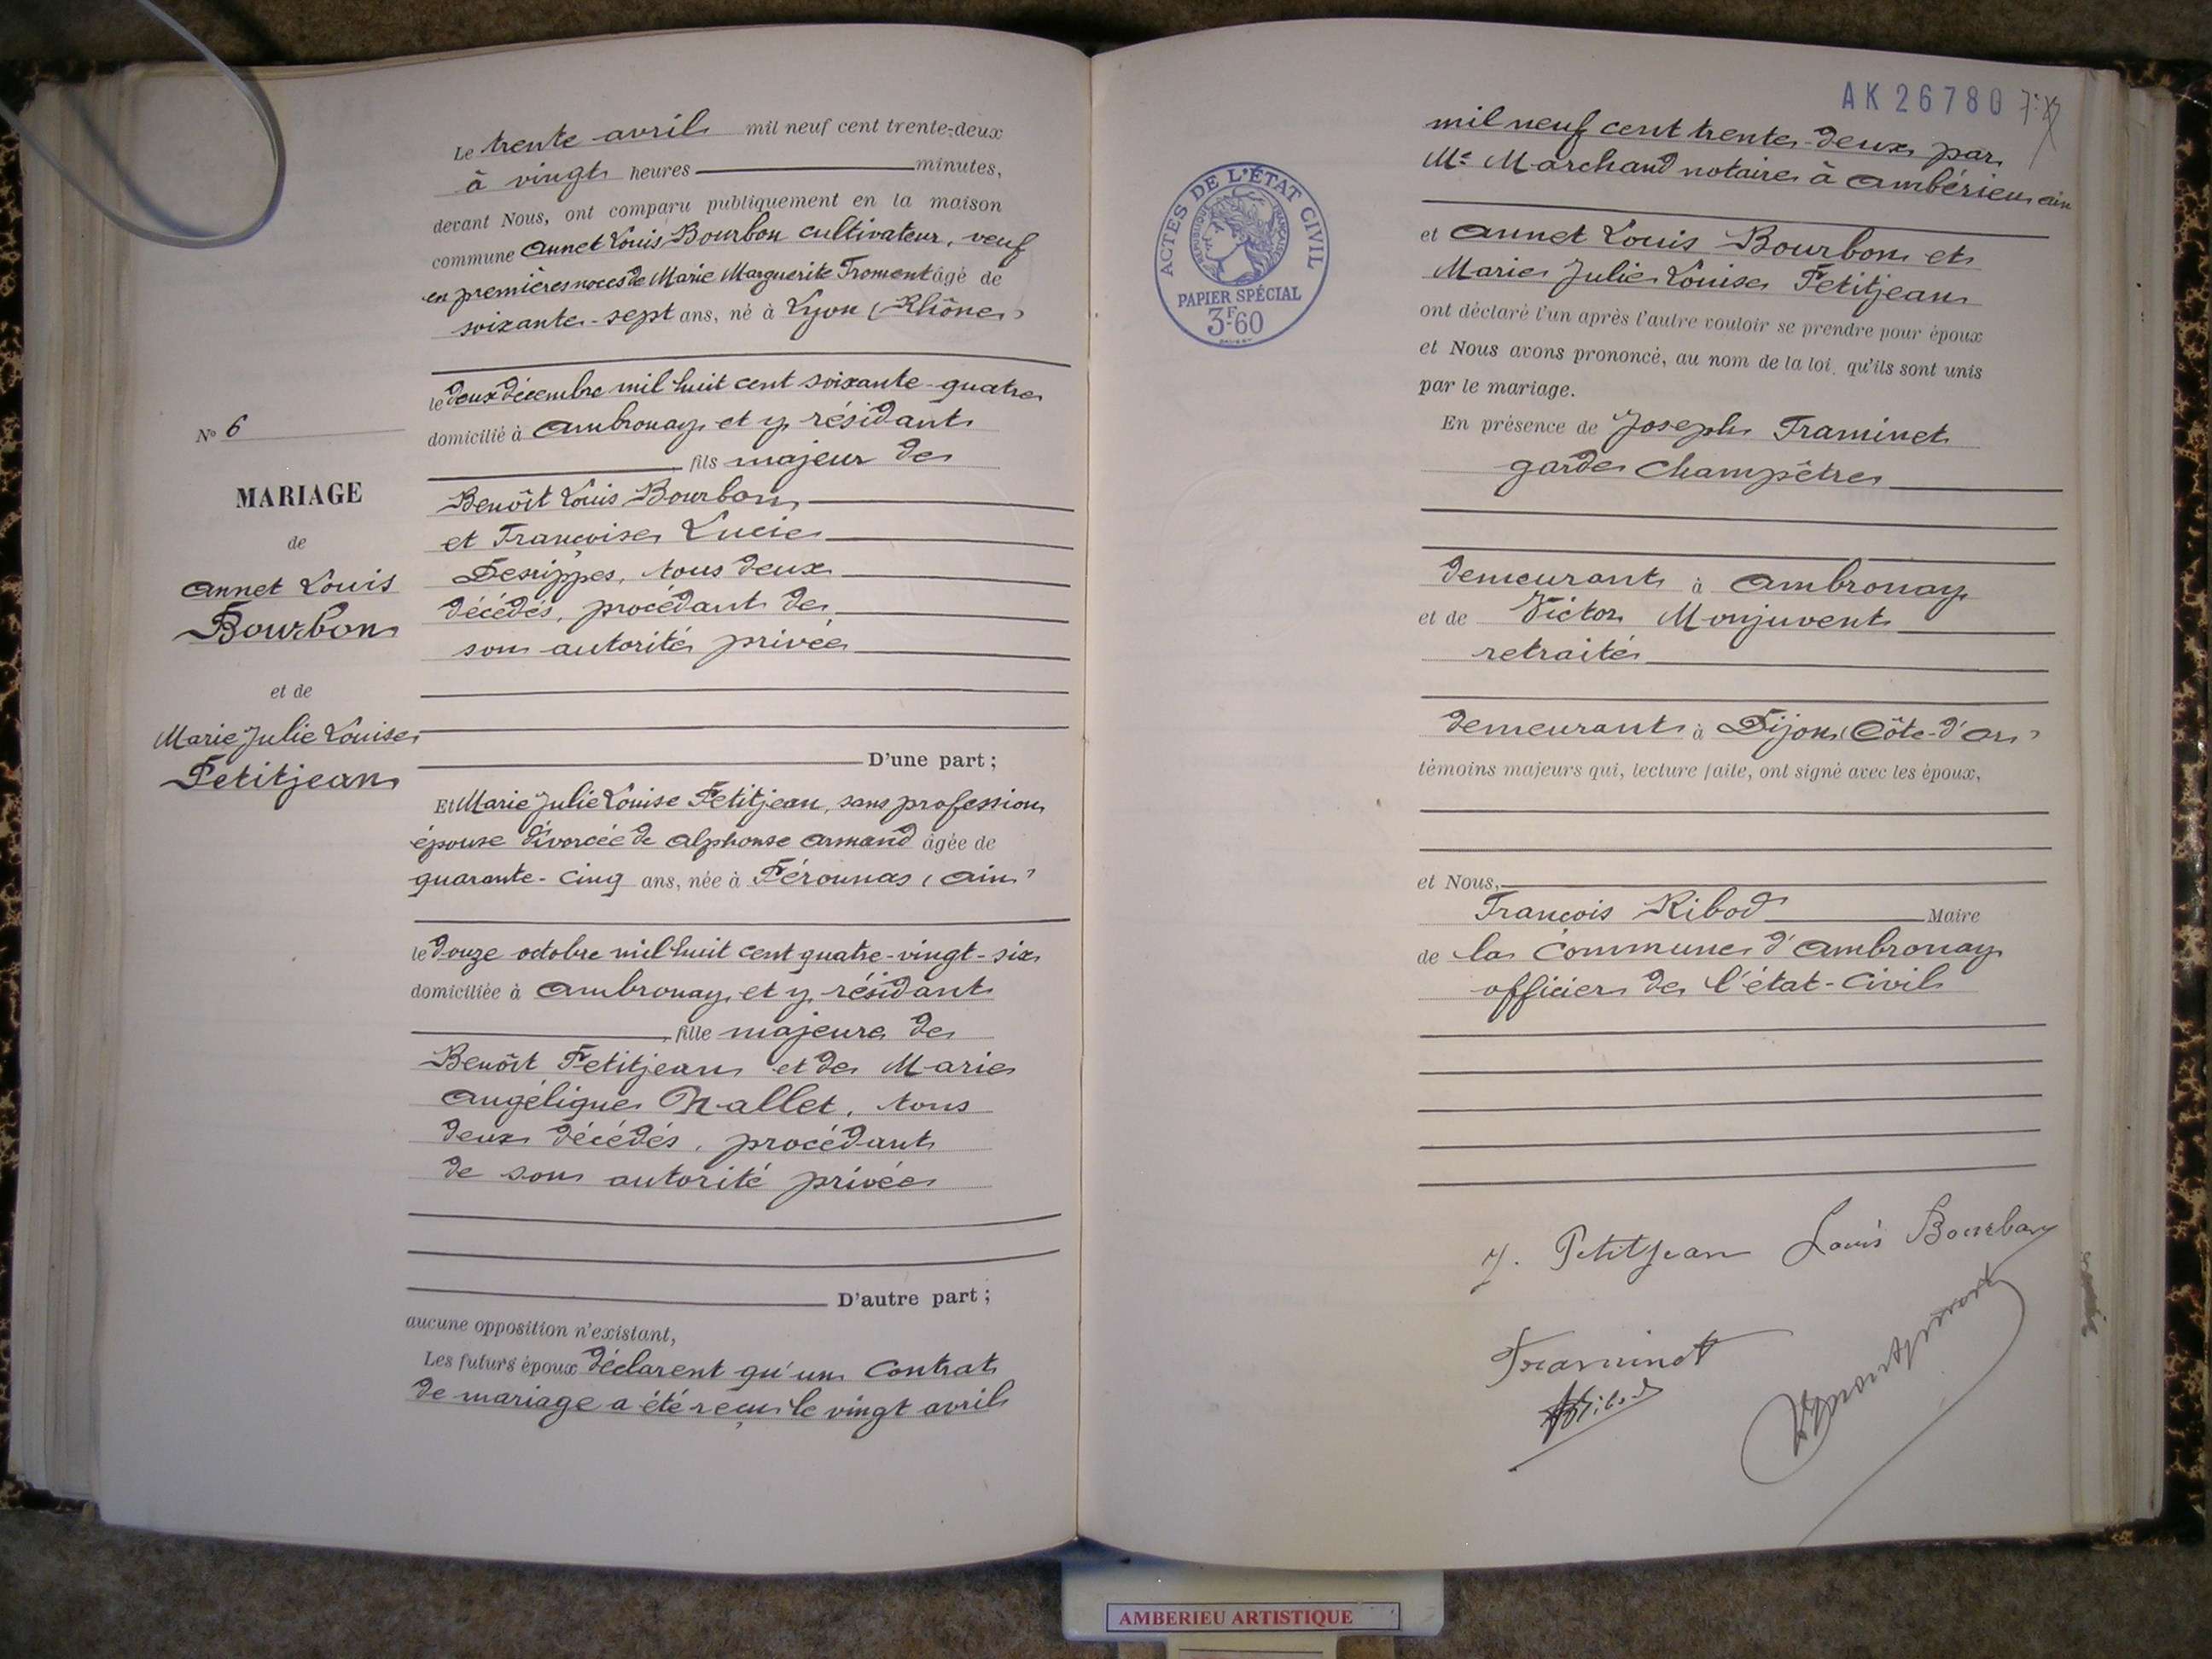 Le trente avril mil neuf cent trente-deux
à vingt heures minutes,
devant Nous, ont comparu publiquement en la maison
commune Annet Louis Bourbon cultivateur, veuf
en premières noces de Marie Marguerite Froment âgé de
soixante-sept ans, né à Lyon (Rhône)
le deux décembre mil huit cent soixante-quatre
domicilié à Ambronay et y résidant
fils majeur de
Benoît Louis Bourbon
et Françoise Lucie
tous deux
décédés, procédant de
son autorité privée
D'une part;
No 6
MARIAGE
de
Annet Louis
Bourbon
et de
Marie Julie Louise
Petitjean
Et Marie Julie Louise Petitjean, sans profession
épouse divorcée de Alphonse Armand âgée de
quarante-cinq ans, née à Péronnas (Ain)
le douze octobre mil huit cent quatre-vingt-six
domiciliée à Ambronay et y résidant
fille majeure de
Benoît Petitjean et de Marie
Angélique Nallet, tous
deux décédés, procédant
de son autorité privée
D'autre part;
aucune opposition n'existant,
Les futurs époux déclarent qu'un contrat
de mariage a été reçu le vingt avril
AK 26780
mil neuf cent trente-deux par
Me Marchand notaire à Ambérieu Ain
ACTES DE L'ÉTAT CIVIL
RÉPUBLIQUE FRANÇAISE
PAPIER SPÉCIAL
3F60
et Annet Louis Bourbon et
Marie Julie Louise Petitjean
ont déclaré l'un après l'autre vouloir se prendre pour époux
et Nous avons prononcé, au nom de la loi, qu'ils sont unis
par le mariage.
En présence de Joseph Traminet
garde champêtre
demeurant à Ambronay
et de Victor Monjuvent
retraité
demeurant à Dijon (Côte-d'Or)
témoins majeurs qui, lecture faite, ont signé avec les époux,
et Nous,
François Ribod Maire
de la commune d'Ambronay
officier de l'état-civil
J. Petitjean Louis Bourbon
Traminet
AMBERIEU ARTISTIQUE